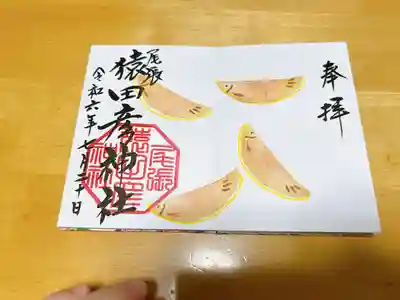 奉拝
尾張
猿田彦神社
令和六年七月十日
尾張
猿田彦
神社